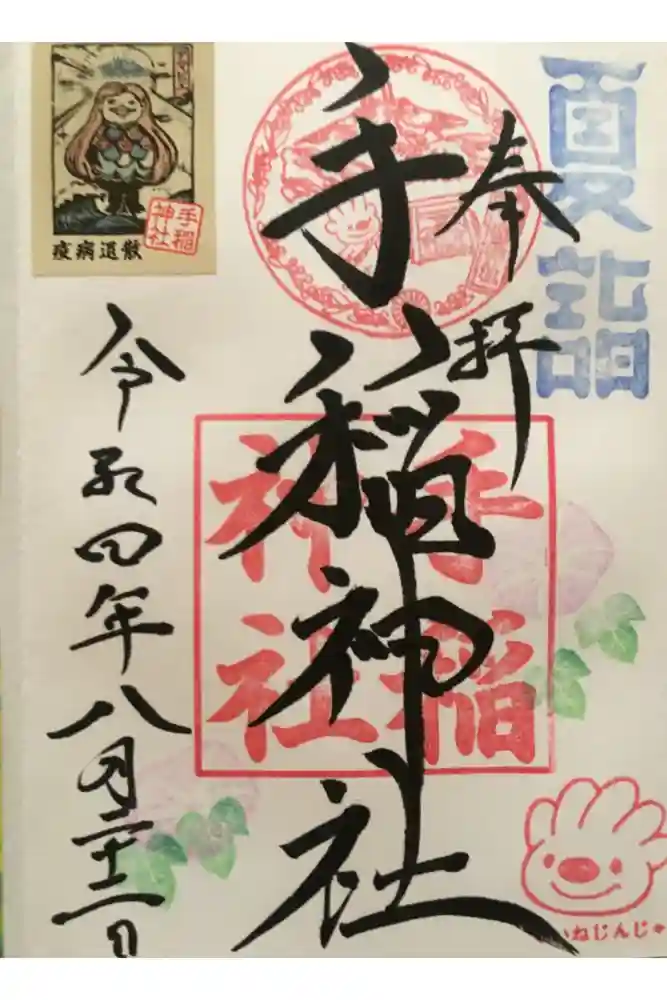 夏詣
奉拝
手稲神社
手稲
神社
令和四年八月二十二日
手稲
神社
疫病退散
いねじんじゃ